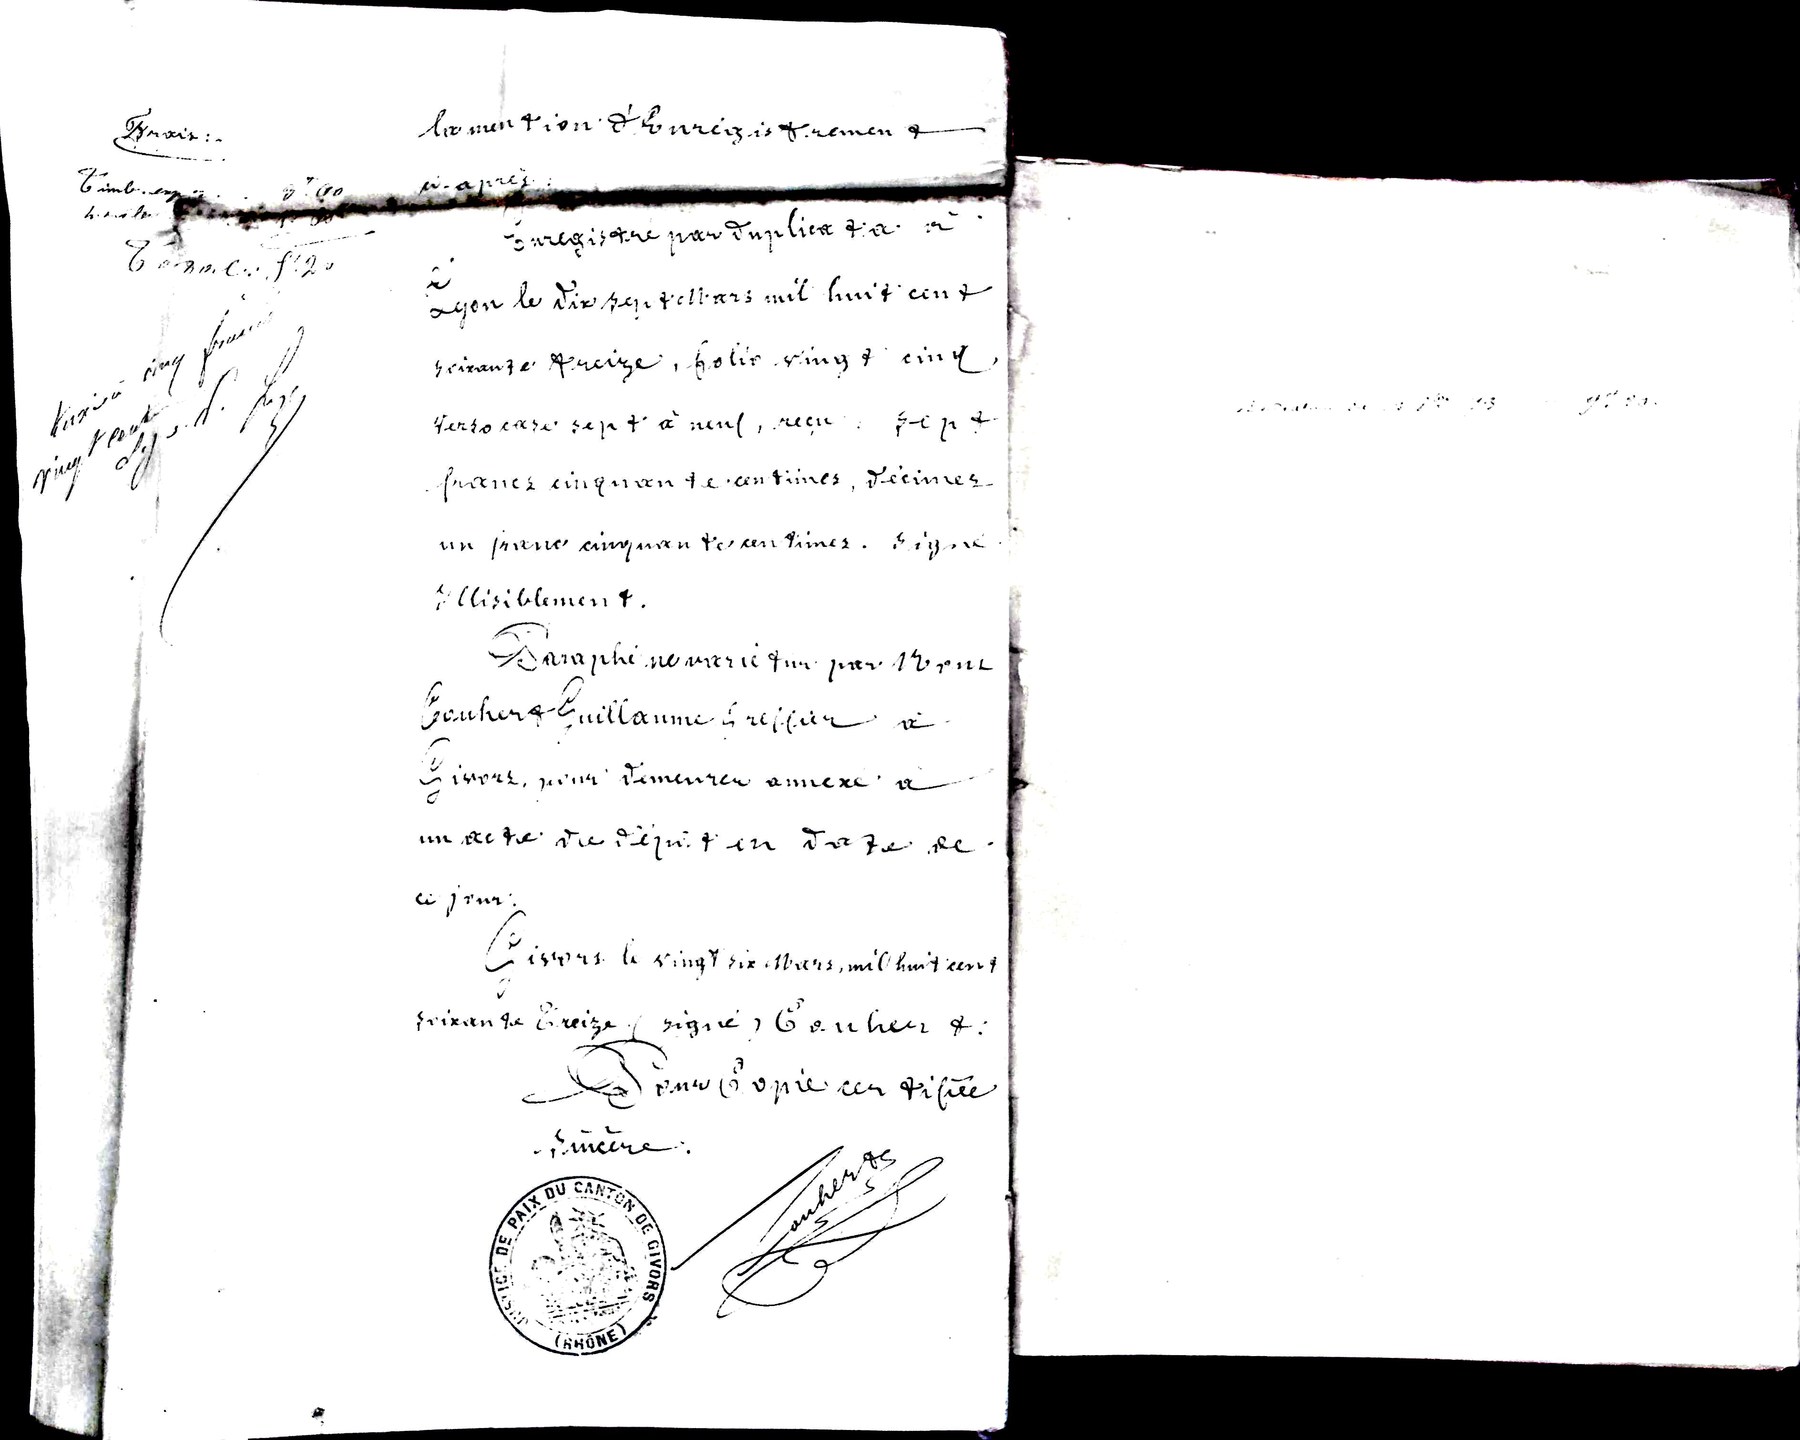 Frais:
Total 5f 20
la mention d'Enregistrement
ci-après:
Enregistré par duplicata à
Lyon le dix sept Mars mil huit cent
soixante treize, folio vingt cinq,
verso case sept à neuf, reçu: sept
francs cinquante centimes, décimes
un franc cinquante centimes. Signé
Illisiblement.
Paraphé ne varietur par Nous
Couhert Guillaume Greffier à
Givors, pour demeurer annexé à
un acte de dépôt en date de
ce jour:
Givors le vingt six Mars, mil huit cent
soixante treize (signé) Couhert:
Pour Copie certifiée
Sincère:
Couhert
JUSTICE DE PAIX DU CANTON DE GIVORS
(RHÔNE)